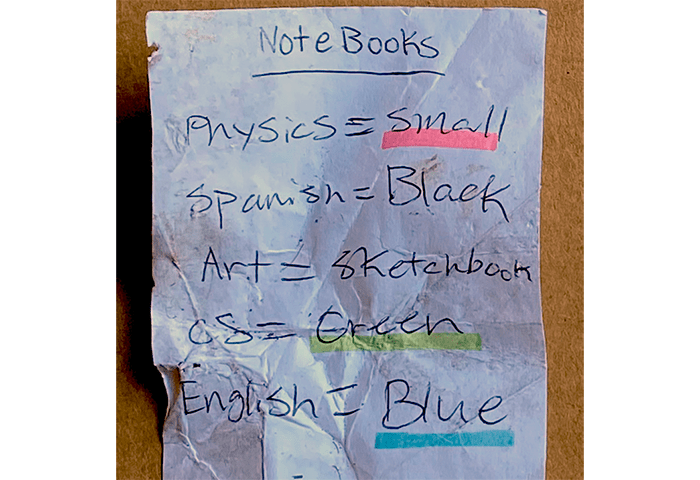 NoteBooks
Physics = Small
Spanish = Black
Art = Sketchbook
CS = Green
English = Blue